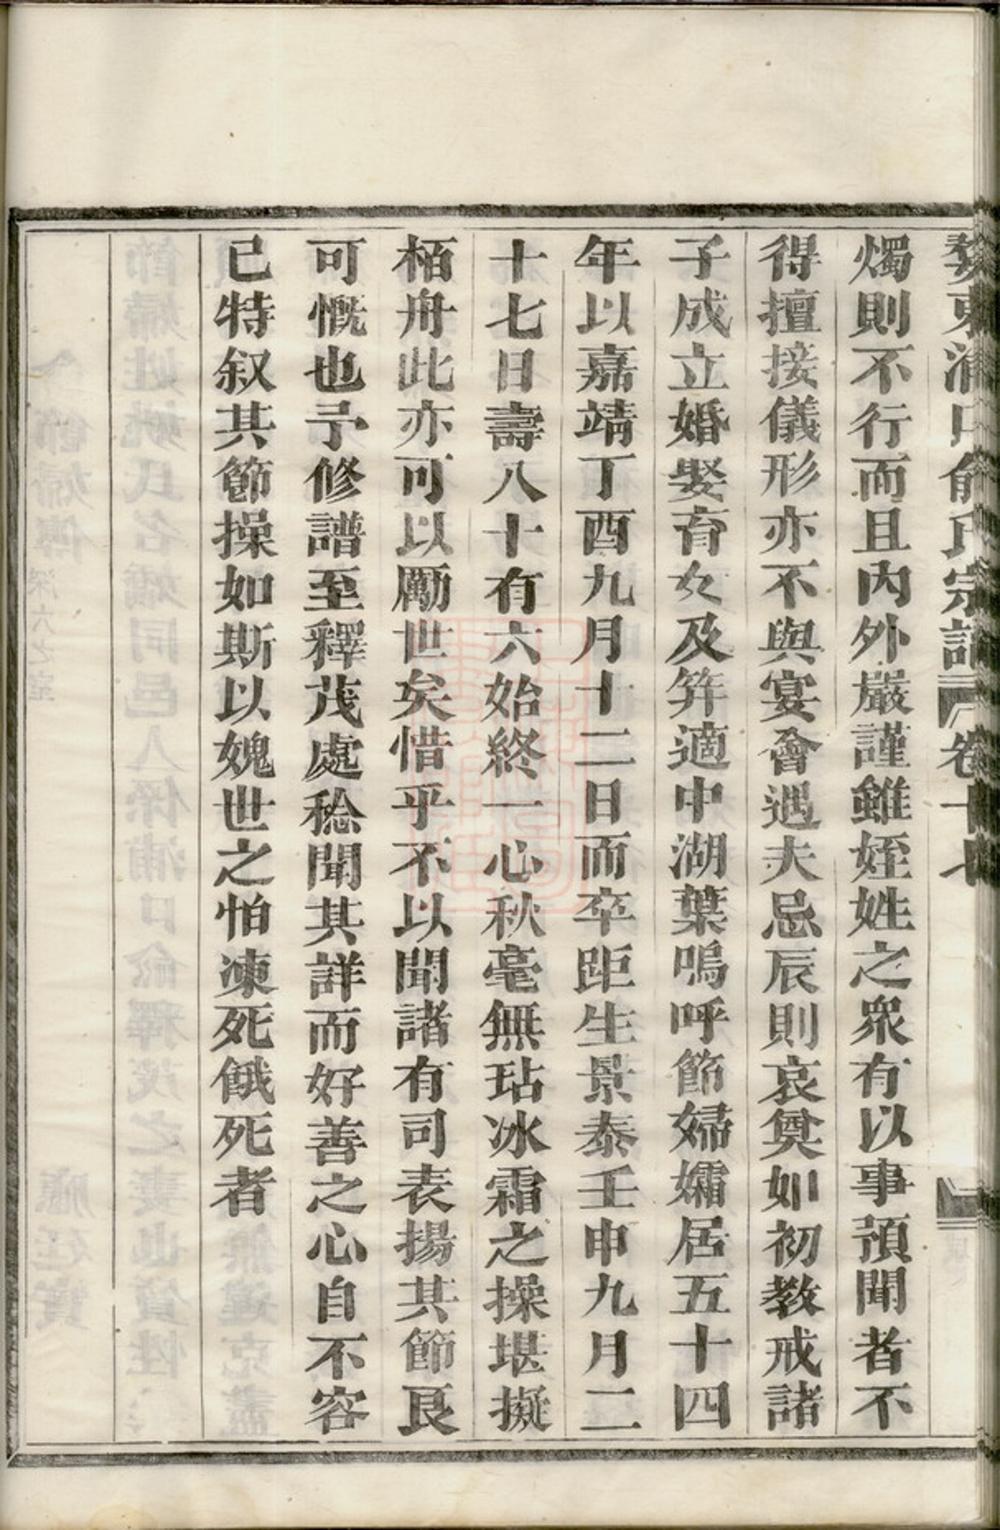 婺東浦口俞氏宗譜 卷十七
燭則不行而且內外嚴謹雖姪姓之衆有以事預聞者不
得擅接儀形亦不與宴會遇夫忌辰則哀奠如初教戒諸
子成立婚娶育女及笄適中湖葉嗚呼節婦孀居五十四
年以嘉靖丁酉九月十二日而卒距生景泰壬申九月二
十七日壽八十有六始終一心秋毫無玷冰霜之操堪擬
栢舟此亦可以勵世矣惜乎不以聞諸有司表揚其節良
可慨也予修譜至釋茂處稔聞其詳而好善之心自不容
已特叙其節操如斯以媿世之怕凍死餓死者